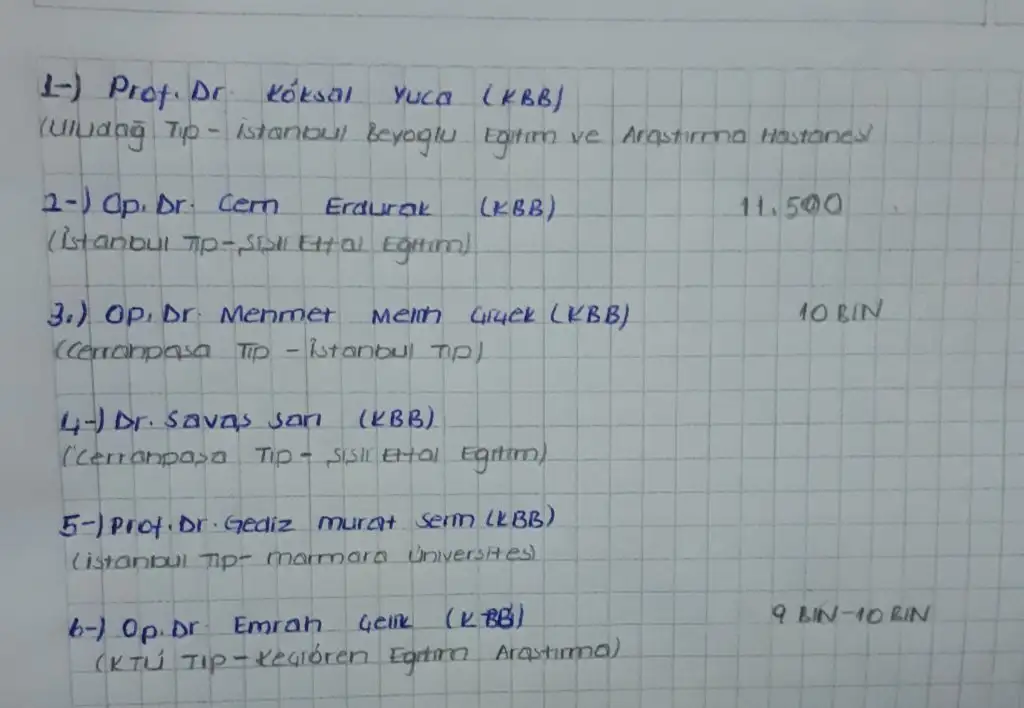 1-) Prof. Dr. Köksal Yuca (KBB)
(Uludağ Tıp - İstanbul Beyoglu Egitim ve Arastirma Hastanesi
2-) Op. Dr. Cem Erdurak (KBB) 11.500
(İstanbul Tıp - Şişli Etfal Egitim)
3.) Op. Dr. Mehmet Melih Çiçek (KBB) 10 BIN
(Cerrahpaşa Tıp - İstanbul Tıp)
4-) Dr. Savaş Sarı (KBB)
(Cerrahpaşa Tıp - Şişli Etfal Egitim)
5-) Prof. Dr. Gediz Murat Serin (KBB)
(istanbul Tıp - Marmara Üniversitesi)
6-) Op. Dr. Emrah Çelik (KBB) 9 BIN-10 BIN
(KTÜ Tıp - Keçiören Egitim Arastirma)